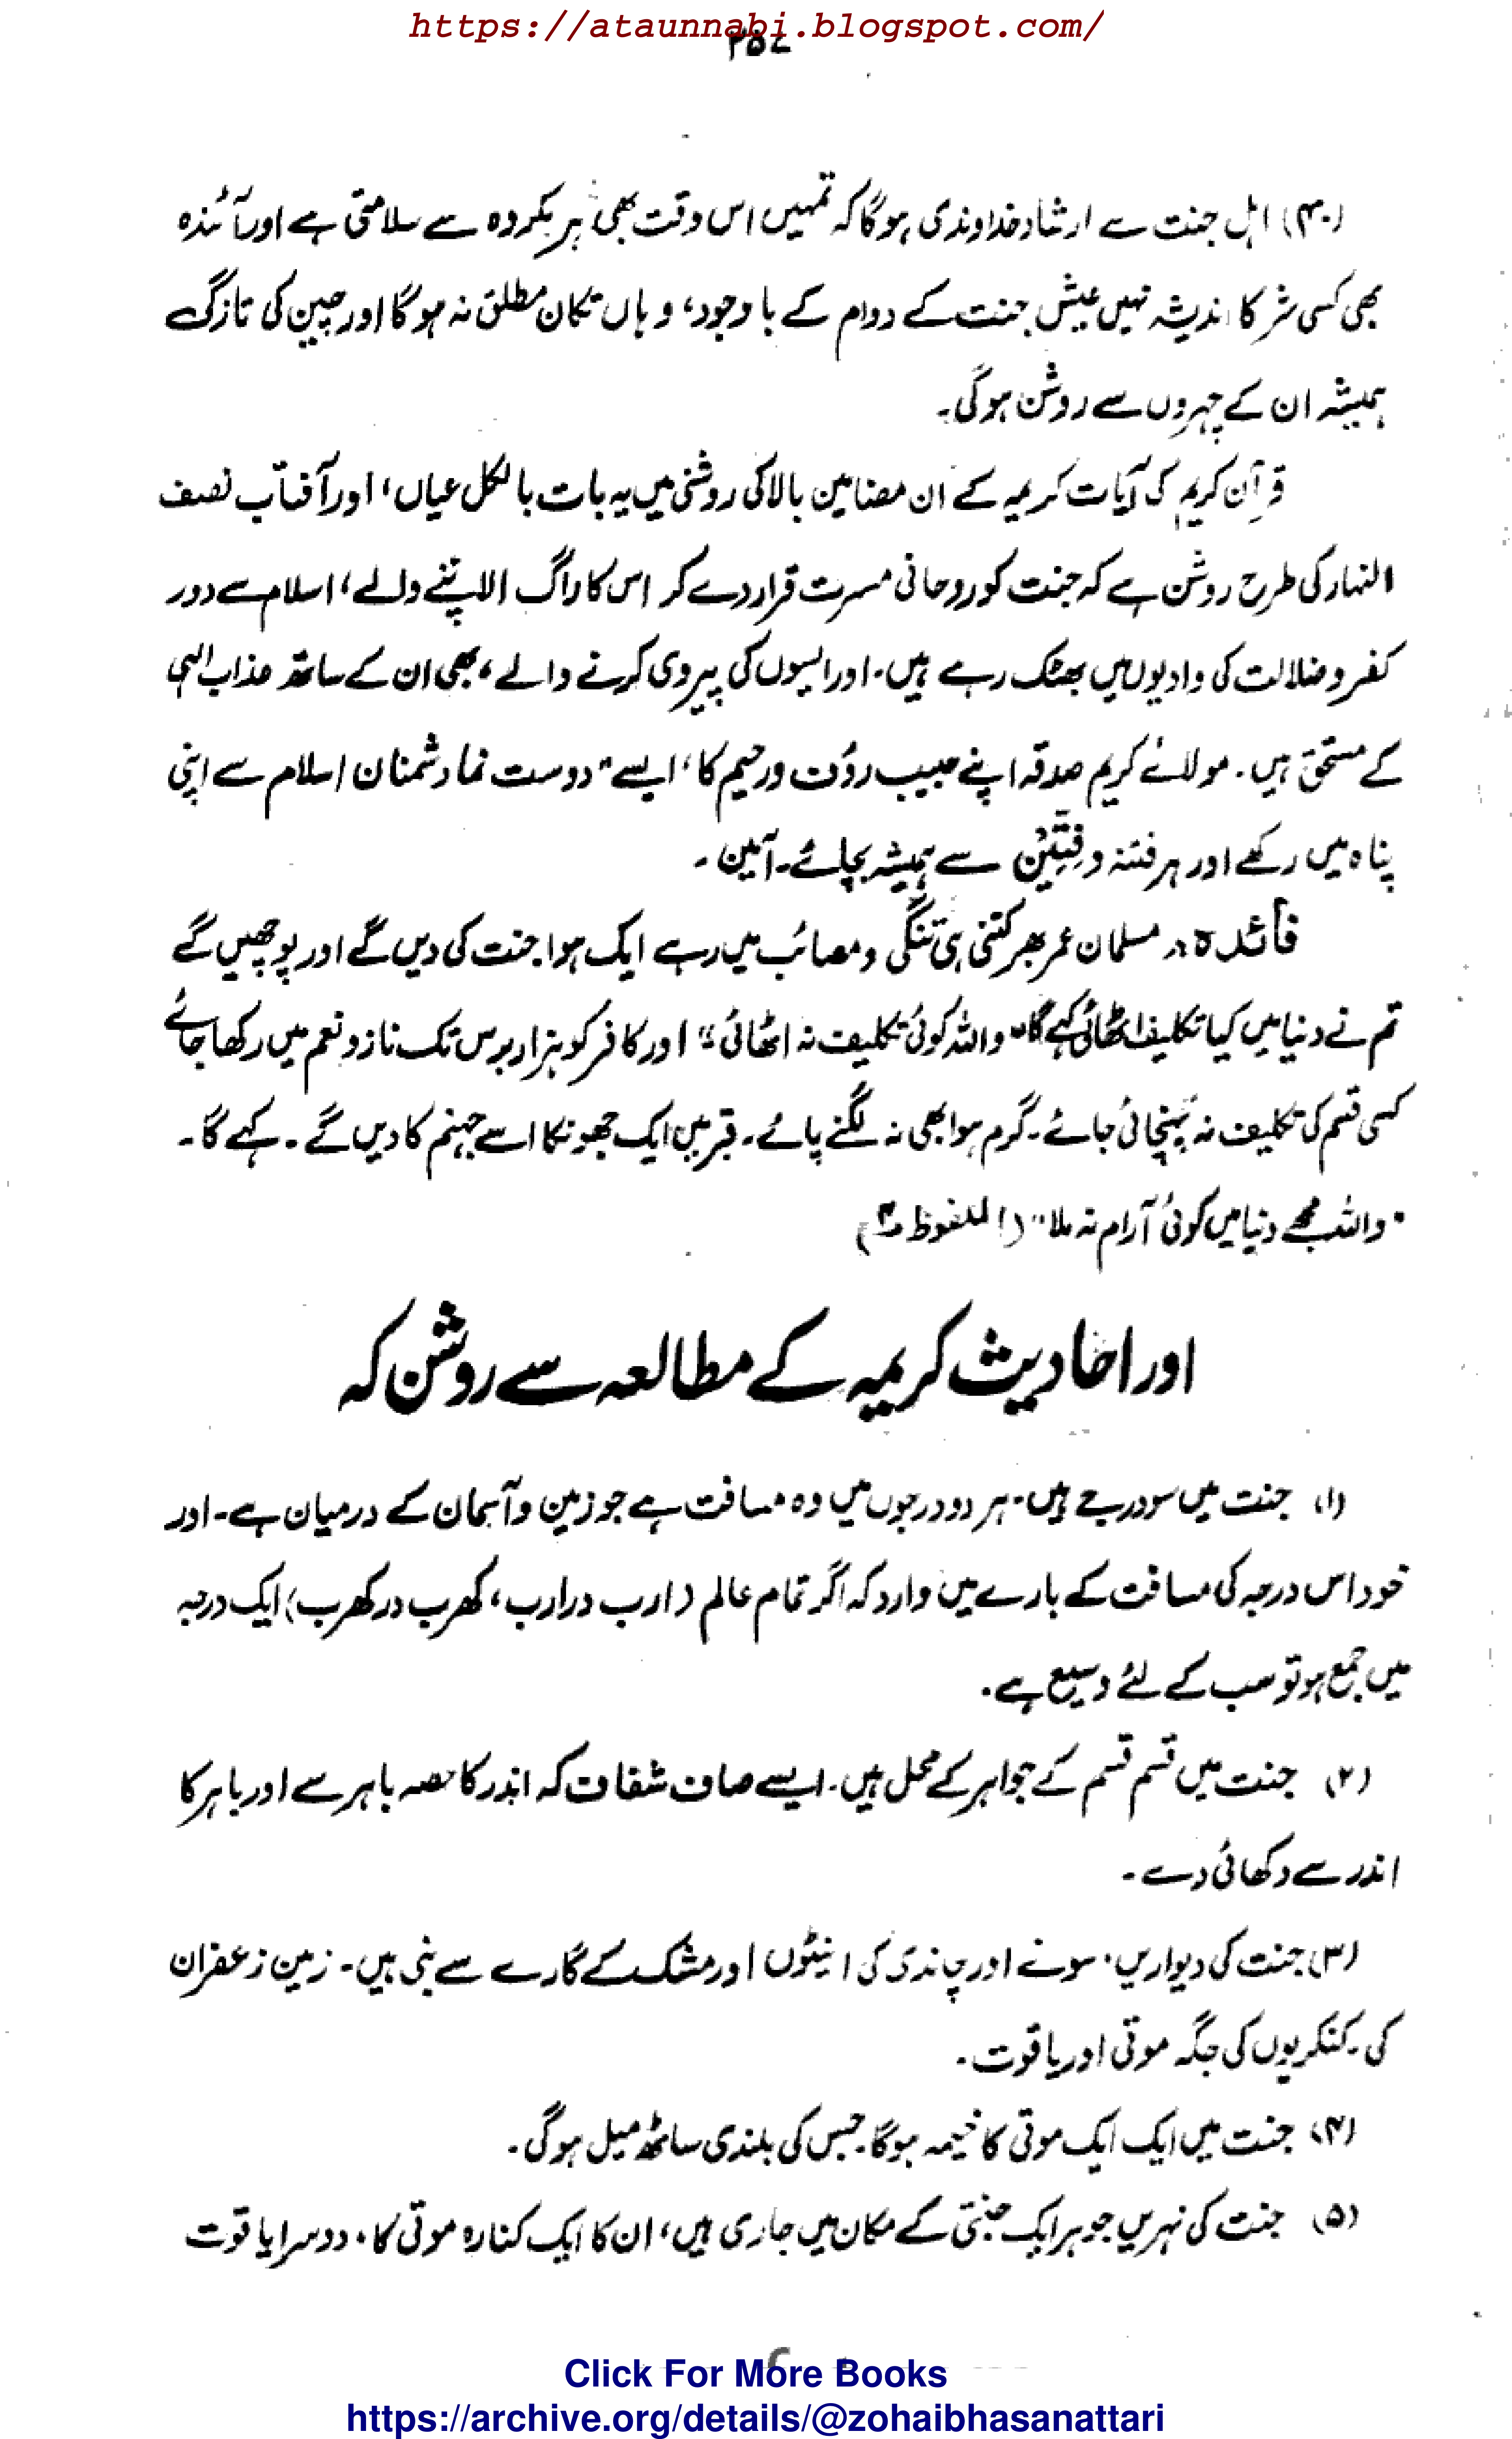 https://ataunnabi.blogspot.com/
۳۵۷
(۴۰) اہل جنت سے ارشاد خداوندی ہوگا کہ تمہیں اس وقت بھی ہر مکردہ سے سلامتی ہے اور آئندہ
بھی کسی شر کا اندیشہ نہیں عیش جنت کے دوام کے باوجود، وہاں تکان مطلق نہ ہوگا اور چین کی تازگی
ہمیشہ ان کے چہروں سے روشن ہوگی۔
قرآن کریم کی آیات کریمہ کے ان مضامین بالا کی روشنی میں یہ بات بالکل عیاں، اور آفتاب نصف
النہار کی طرح روشن ہے کہ جنت کو روحانی مسرت قرار دے کر اس کا راگ الاپنے والے، اسلام سے دور
کفر و ضلالت کی وادیوں میں بھٹک رہے ہیں۔ اور ایسوں کی پیروی کرنے والے، بھی ان کے ساتھ عذاب الٰہی
کے مستحق ہیں۔ مولائے کریم صدقہ اپنے حبیب رؤف و رحیم کا، ایسے "دوست نما دشمنان اسلام سے اپنی
پناہ میں رکھے اور ہر فتنہ و فتین سے ہمیشہ بچائے۔ آمین۔
فائدہ:۔ مسلمان عمر بھر کتنی ہی تنگی و مصائب میں رہے ایک ہوا جنت کی دیں گے اور پوچھیں گے
تم نے دنیا میں کیا تکلیف اٹھائی کہے گا "واللہ کوئی تکلیف نہ اٹھائی" اور کافر کو ہزار برس تک ناز و نعم میں رکھا جائے
کسی قسم کی تکلیف نہ پہنچائی جائے۔ گرم ہوا بھی نہ لگنے پائے۔ قبر میں ایک جھونکا اسے جہنم کا دیں گے۔ کہے گا۔
"واللہ مجھے دنیا میں کوئی آرام نہ ملا" (الملفوظ ص۴)
اور احادیث کریمہ کے مطالعہ سے روشن کہ
(۱) جنت میں سو درجے ہیں۔ ہر دو درجوں میں وہ مسافت ہے جو زمین و آسمان کے درمیان ہے۔ اور
خود اس درجہ کی مسافت کے بارے میں وارد کہ اگر تمام عالم (ارب در ارب، کھرب در کھرب) ایک درجہ
میں جمع ہو تو سب کے لئے وسیع ہے۔
(۲) جنت میں قسم قسم کے جواہر کے محل ہیں۔ ایسے صاف شفاف کہ اندر کا حصہ باہر سے اور باہر کا
اندر سے دکھائی دے۔
(۳) جنت کی دیواریں، سونے اور چاندی کی اینٹوں اور مشک کے گارے سے بنی ہیں۔ زمین زعفران
کی۔ کنکریوں کی جگہ موتی اور یاقوت۔
(۴) جنت میں ایک ایک موتی کا خیمہ ہوگا۔ جس کی بلندی ساٹھ میل ہوگی۔
(۵) جنت کی نہریں جو ہر ایک جنتی کے مکان میں جاری ہیں، ان کا ایک کنارہ موتی کا، دوسرا یاقوت
Click For More Books
https://archive.org/details/@zohaibhasanattari